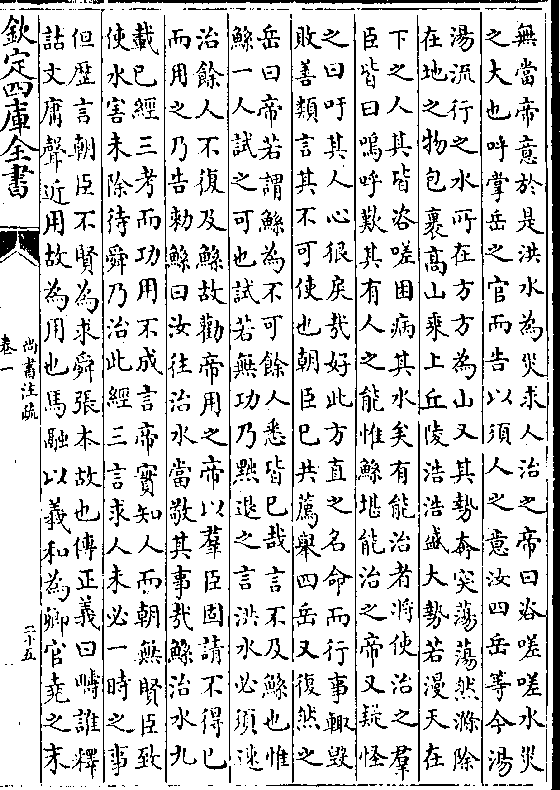 無當帝意於是洪水為災求人治之帝曰咨嗟嗟水災
之大也呼掌岳之官而告以須人之意汝四岳等今湯
湯流行之水所在方方為山又其勢奔突蕩蕩然滌除
在地之物包裹高山乘上丘陵浩浩盛大勢若漫天在
下之人其皆咨嗟困病其水矣有能治者將使治之羣
臣皆曰嗚呼歎其有人之能惟鯀堪能治之帝又疑怪
之曰吁其人心很戾哉好此方直之名命而行事輒毀
敗善類言其不可使也朝臣已共薦舉四岳又復然之
岳曰帝若謂鯀為不可餘人悉皆已哉言不及鯀也惟
鯀一人試之可也試若無功乃黜退之言洪水必須速
治餘人不復及鯀故勸帝用之帝以羣臣固請不得已
而用之乃告勑鯀曰汝往治水當敬其事哉鯀治水九
載已經三考而功用不成言帝實知人而朝無賢臣致
使水害未除待舜乃治此經三言求人未必一時之事
但歴言朝臣不賢為求舜張本故也傳正義曰疇誰釋
詁文庸聲近用故為用也馬融以羲和為卿官堯之末
欽定四庫全書
尚書注疏
卷一
二十五